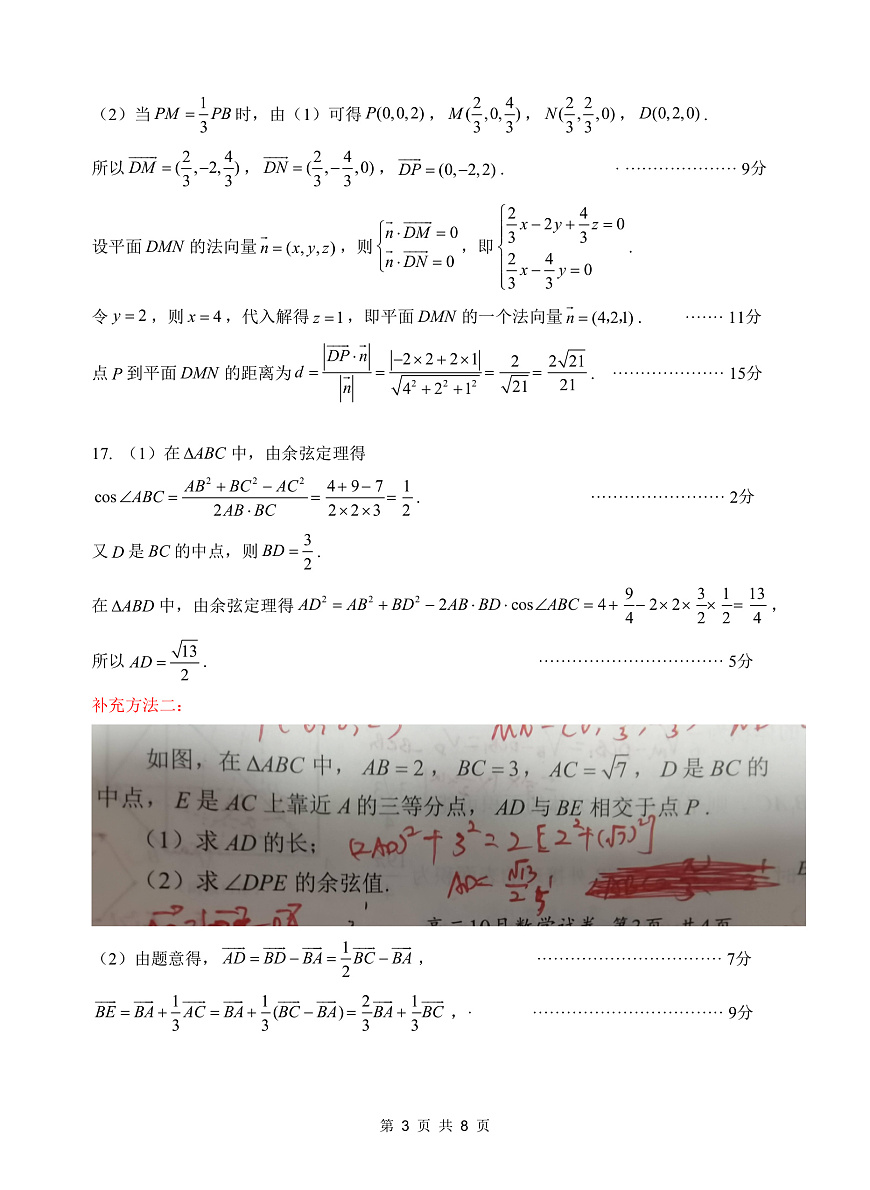 （2）当 PM = 1/3 PB 时，由（1）可得 P(0,0,2)，M(2/3,0,4/3)，N(2/3,2/3,0)，D(0,2,0).
所以 DM = (2/3,−2,4/3)，DN = (2/3,−4/3,0)，DP = (0,−2,2). · ···················· 9分
设平面 DMN 的法向量 n = (x,y,z)，则 { n·DM = 0, n·DN = 0 ，即 { 2/3 x − 2y + 4/3 z = 0, 2/3 x − 4/3 y = 0 .
令 y = 2，则 x = 4，代入解得 z = 1，即平面 DMN 的一个法向量 n = (4,2,1). ······· 11分
点 P 到平面 DMN 的距离为 d = |DP·n| / |n| = |−2×2+2×1| / √(4²+2²+1²) = 2/√21 = 2√21/21. ···················· 15分
17. （1）在 ΔABC 中，由余弦定理得
cos∠ABC = (AB²+BC²−AC²)/(2AB·BC) = (4+9−7)/(2×2×3) = 1/2. ························ 2分
又 D 是 BC 的中点，则 BD = 3/2.
在 ΔABD 中，由余弦定理得 AD² = AB² + BD² − 2AB·BD·cos∠ABC = 4 + 9/4 − 2×2×3/2×1/2 = 13/4，
所以 AD = √13/2. ································· 5分
补充方法二：
如图，在 ΔABC 中，AB = 2，BC = 3，AC = √7，D 是 BC 的
中点，E 是 AC 上靠近 A 的三等分点，AD 与 BE 相交于点 P.
（1）求 AD 的长； (2AD)² + 3² = 2[2²+(√7)²]
（2）求 ∠DPE 的余弦值. AD = √13/2 5'
高二10月数学试卷 第3页 共4页
（2）由题意得，AD = BD − BA = 1/2 BC − BA， ································· 7分
BE = BA + 1/3 AC = BA + 1/3(BC − BA) = 2/3 BA + 1/3 BC， · ·································· 9分
第 3 页 共 8 页